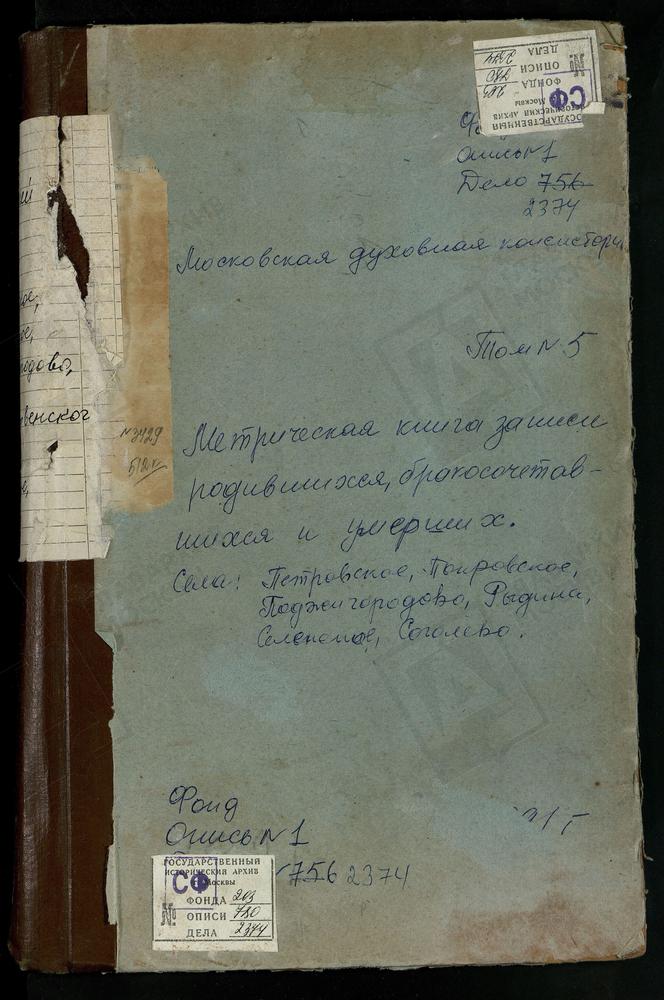 ГОСУДАРСТВЕННЫЙ
ИСТОРИЧЕСКИЙ АРХИВ
г. Москвы
СФ
ФОНДА 203
№ ОПИСИ 780
ДЕЛА 2374
Опись №1
Дело 756
2374
Московская духовная консистория
Том № 5
ий
ое,
ое,
родово,
венског
№ 2429
Метрическая книга записи
родившихся, бракосочетав-
шихся и умерших.
Села: Петровское, Покровское,
Поджигородово, Рыдина,
Соголево.
Фонд
Опись №1
756 2374
ГОСУДАРСТВЕННЫЙ
ИСТОРИЧЕСКИЙ АРХИВ
г. Москвы
СФ
ФОНДА 203
№ ОПИСИ 780
ДЕЛА 2374